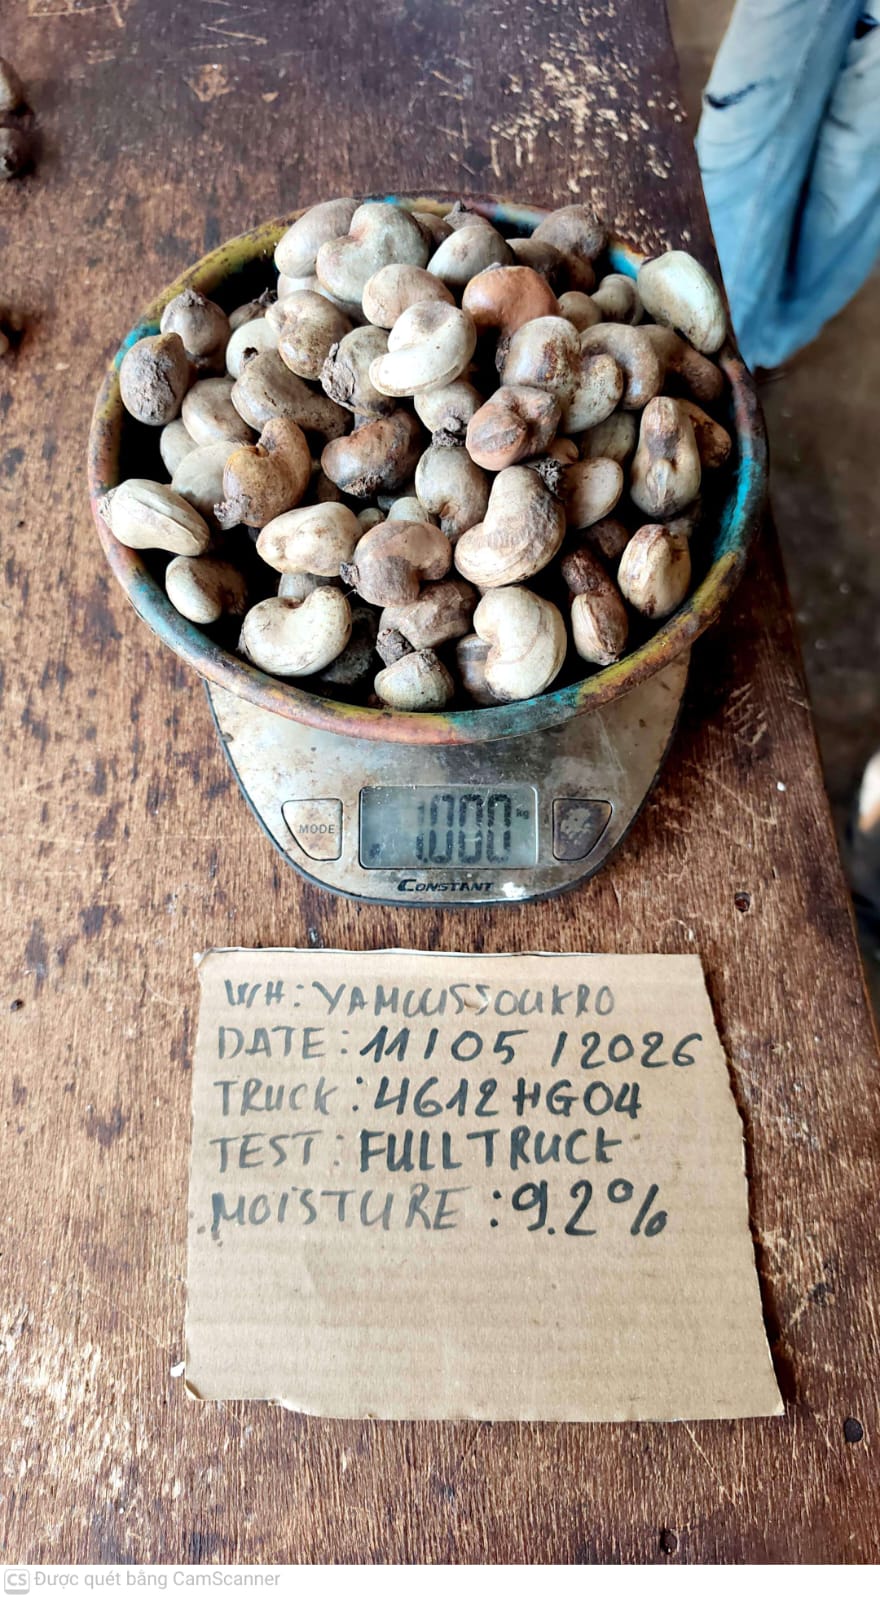 1.000 kg
MODE
CONSTANT
WH: YAMOUSSOUKRO
DATE: 11/05/2026
TRUCK: 4612HG04
TEST: FULL TRUCK
MOISTURE: 9.2%
CS Được quét bằng CamScanner